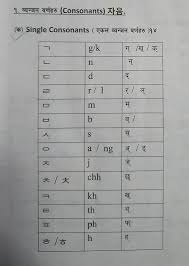 १. व्यञ्जन वर्णहरु (Consonants) 자음.
(क) Single Consonants ( एकल व्यञ्जन वर्णहरु )१४
ㄱ g/k ग् /ख / क्
ㄴ n न्
ㄷ d द्
ㄹ r / l र / ल्
ㅁ m म्
ㅂ b ब्
ㅅ s स्
ㅇ a / ng अ् / ङ्
ㅈ j ज्
ㅊ / ㅊ chh छ्
ㅋ kh ख्
ㅌ th थ्
ㅍ ph फ्
ㅎ / ㅎ h ह्